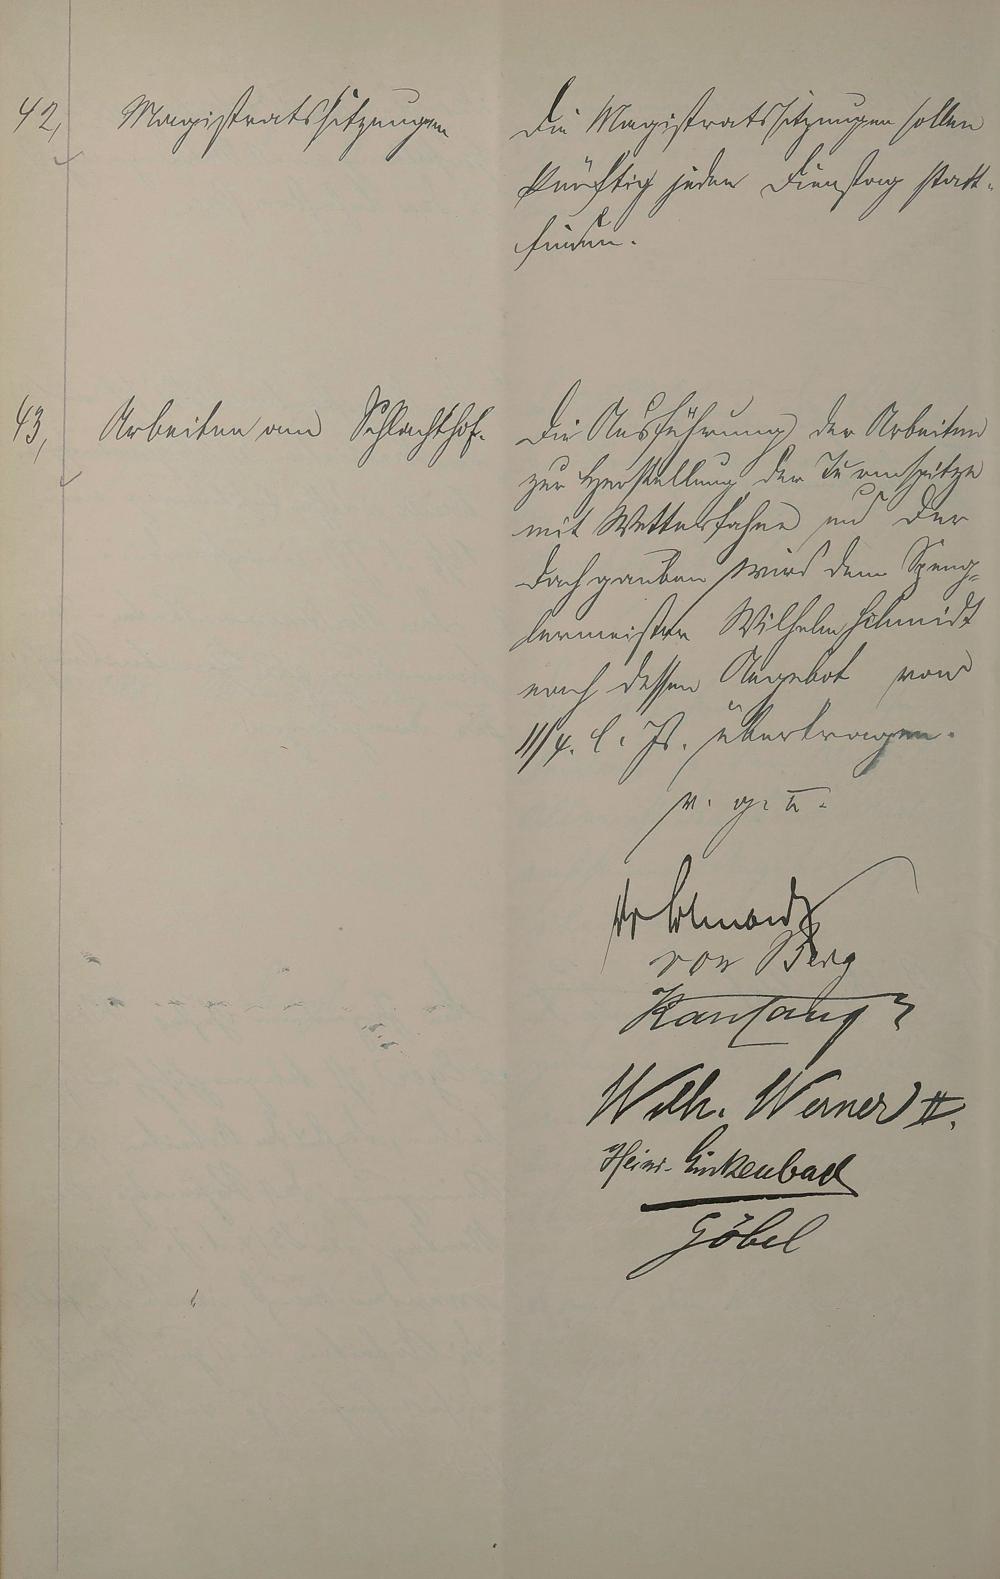 42, Magistratssitzungen
Die Magistratssitzungen sollen
künftig jeden Dienstag statt-
finden.
43, Arbeiten am Schlachthof.
Die Ausführung der Arbeiten
zur Herstellung der Turmspitze
mit Wetterfahne und der
Dachgauben wird dem Speng-
lermeister Wilhelm Schmidt
nach dessen Angebot vom
11/4. l. Js. übertragen.
v. g. u.
von Berg
Wilh. Werner II.
Heinr.
Göbel